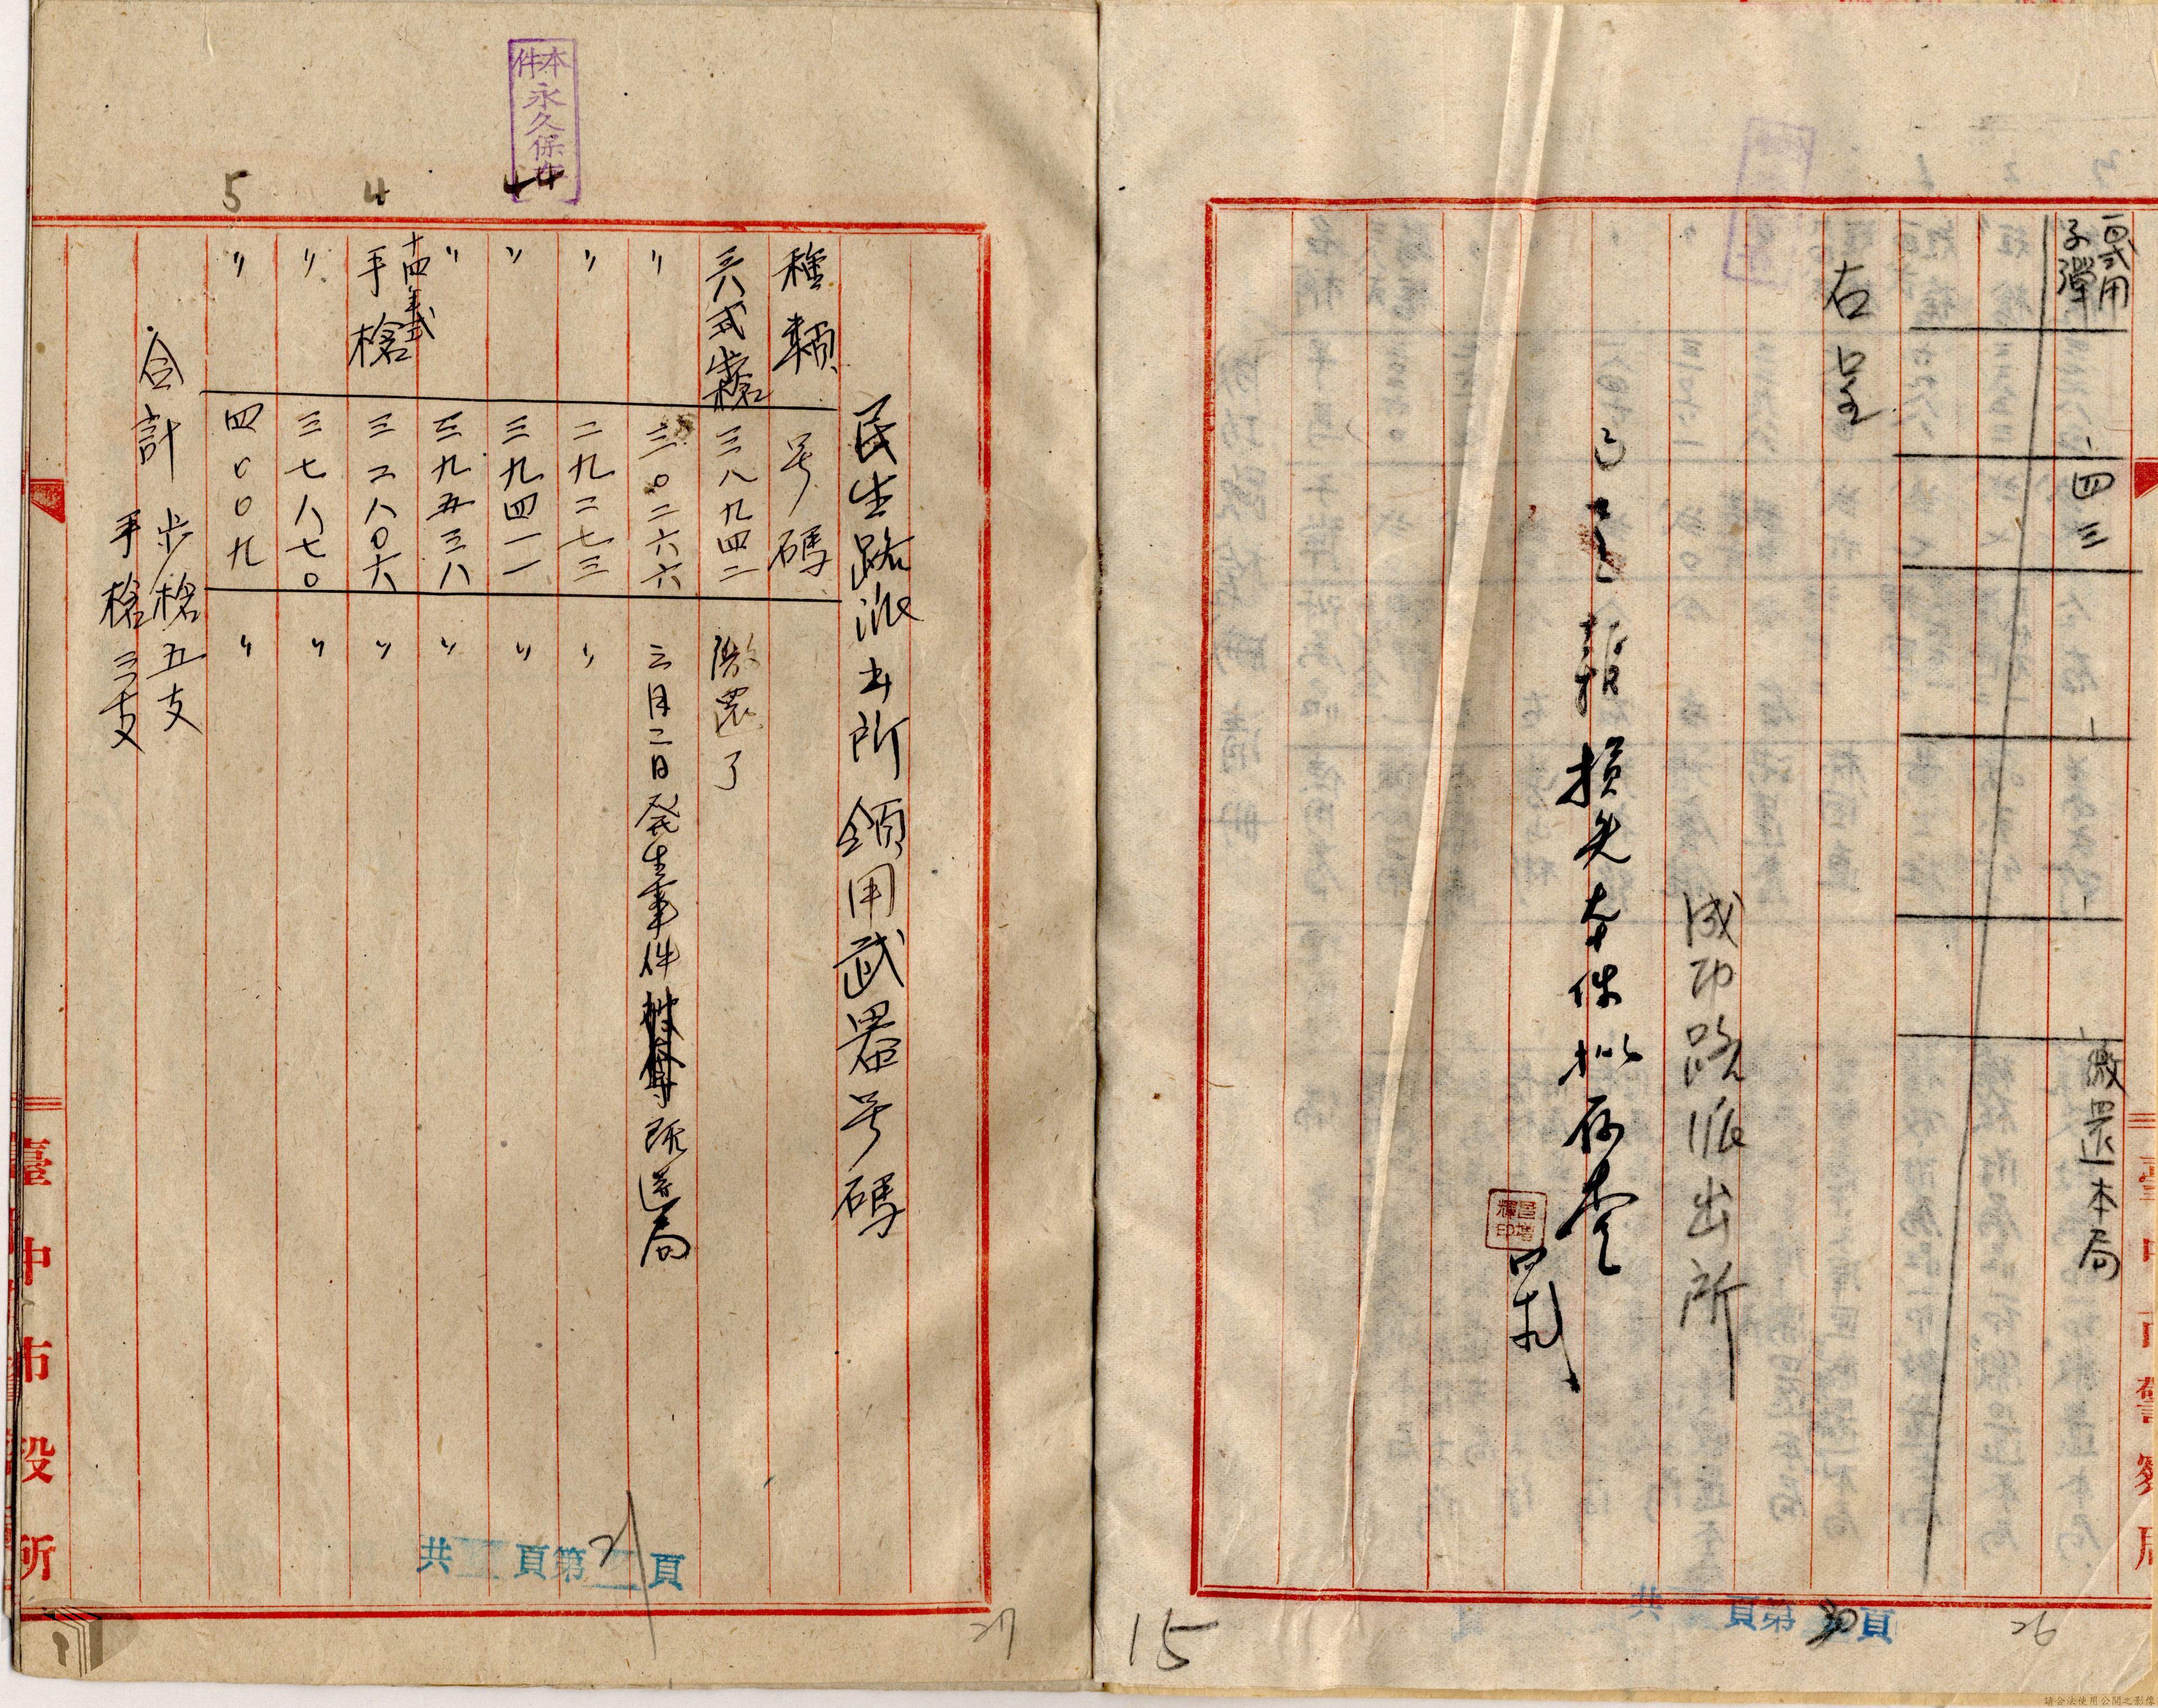 子彈
四三
一
繳還本局
右呈
成功路派出所
報損失本件拟存查
臺中市警察局
共 頁第 30 頁
26
15
本件永久保存
民生路派出所領用武器号碼
種類 号碼
三八式步槍 三八九四二 繳還了
〃 三〇二六六 三月二日発生事件 所送局
〃 二九二七三 〃
〃 三九四一一 〃
〃 三九五三八 〃
十四年式手槍 三二八〇六 〃
〃 三七八七〇 〃
〃 四〇〇九 〃
合計 步槍五支
手槍三支
4
5
臺中市役所
共 頁第 頁
27
請合法使用公開之影像